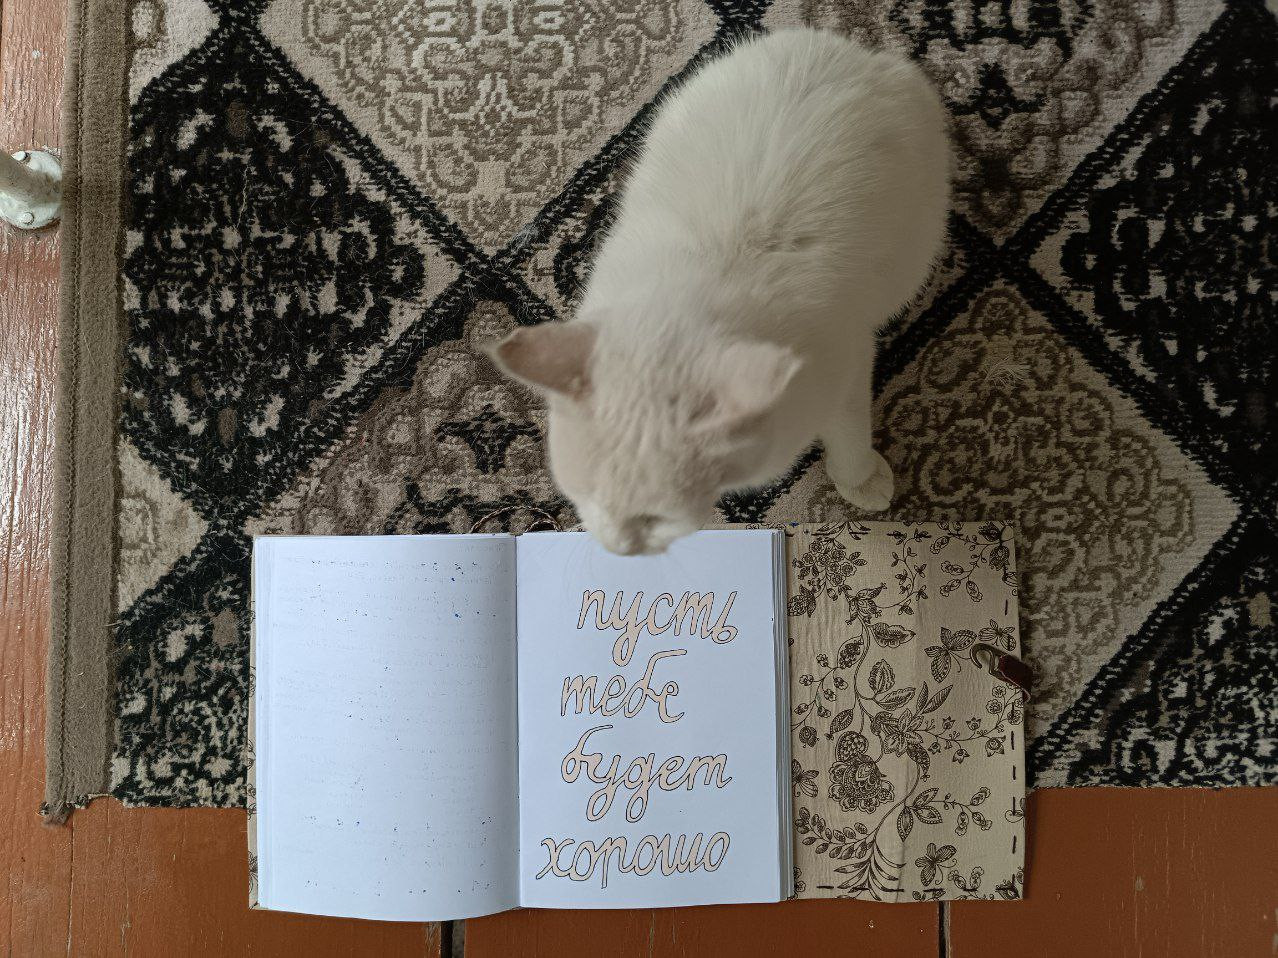 пусть
тебе
будет
хорошо